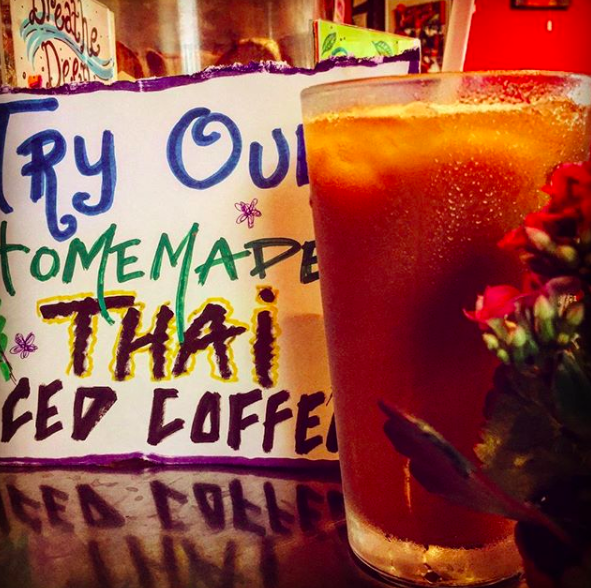 Breathe
Deep
TRY OUR
HOMEMADE
THAi
ICED COFFEE